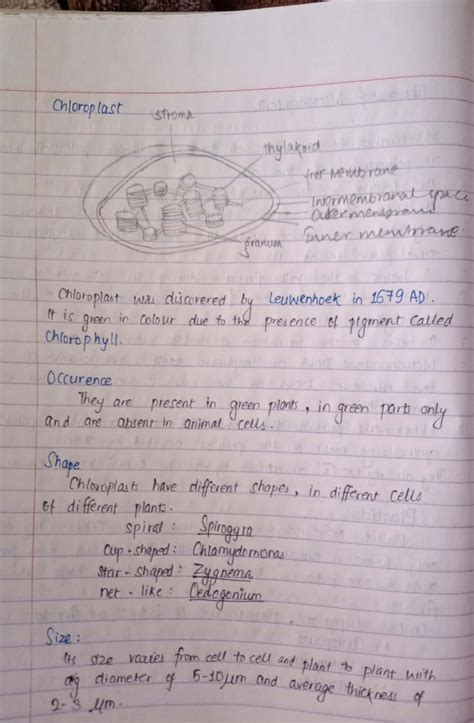 Chloroplast
stroma
thylakoid
Membrane
Intermembranal space
Outermembrane
Inner membrane
granum
Chloroplast was discovered by Leuwenhoek in 1679 AD.
It is green in colour due to the presence of pigment called
Chlorophyll.
Occurence
They are present in green plants, in green parts only
and are absent in animal cells.
Shape
Chloroplasts have different shapes, in different cells
of different plants.
spiral : Spirogyra
cup-shaped: Chlamydomonas
star-shaped: Zygnema
net-like: Oedogonium
Size:
Its size varies from cell to cell and plant to plant with
diameter of 5-10μm and average thickness of
2-3 μm.